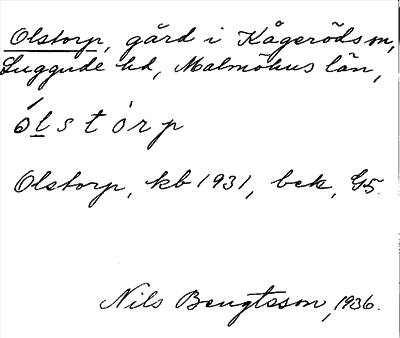 Olstorp, gård i Kågeröds sn,
Luggude hd, Malmöhus län,
ól̲stòrp
Olstorp, kb 1931, bek, G5.
Nils Bengtsson, 1936.